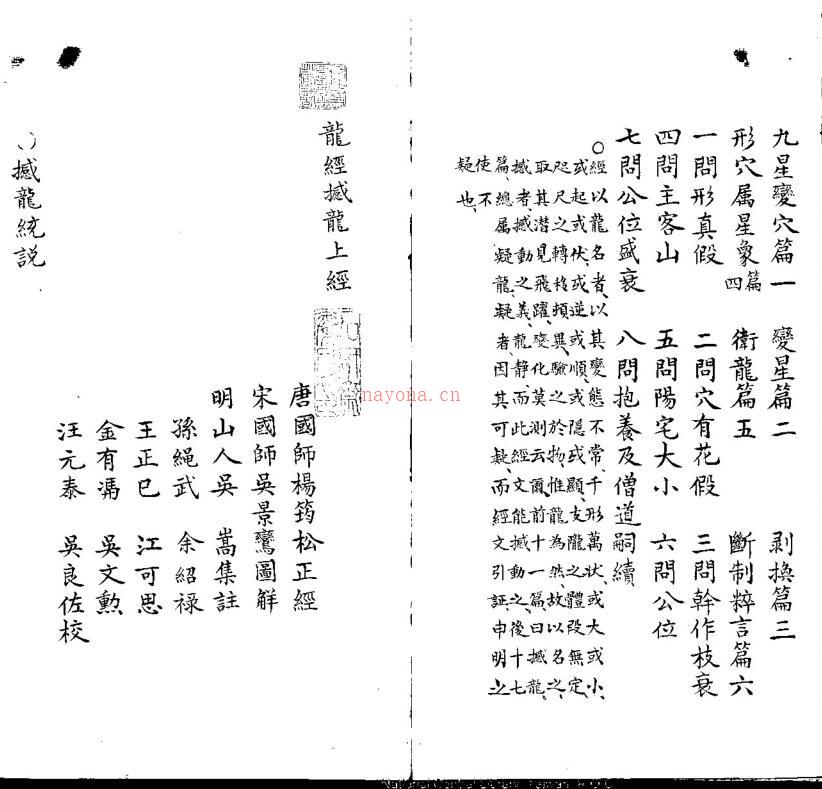 九星變穴篇一 變星篇二 剥換篇三
形穴属星象篇四 衛龍篇五 斷制粹言篇六
一問形真假 二問穴有花假 三問幹作枝衰
四問主客山 五問陽宅大小 六問公位
七問公位盛衰 八問抱養及僧道嗣續
○經以龍名者、以其變態不常、千形萬狀、或大或小、
或起或伏、或逆或順、或隱或顯、支隴之體段無定、
咫尺之轉移頻異、驗之於物、惟龍為然、故以名之、
取其潛見飛躍、變化莫測云爾、前十一篇、曰撼龍、
撼者、撼動之義、龍静、而此經文能撼動之、後十七
篇、總属疑龍、疑者、因其可疑、而經文引証、申明之
使不
疑也
龍經撼龍上經
唐國師楊筠松正經
宋國師吳景鸞圖解
明山人吳 嵩集註
孫繩武 余紹祿
王正巳 江可思
金有馮 吳文勲
汪元泰 吳良佐校
○撼龍統説
nayona.cn